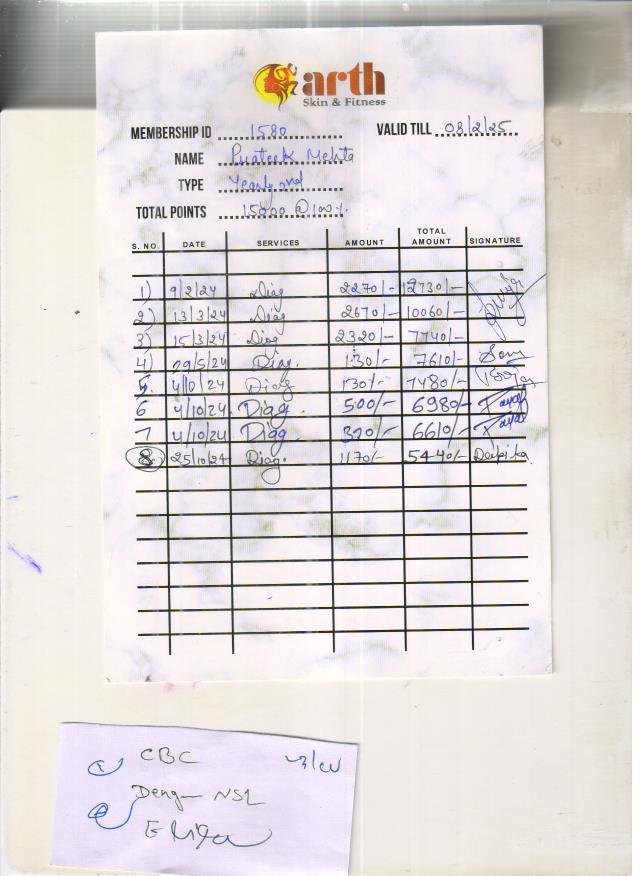 arth
Skin & Fitness
MEMBERSHIP ID 1580 VALID TILL 08/2/25
NAME Prateek Mehta
TYPE Yearly
TOTAL POINTS 15000 @ 100%
S. NO. DATE SERVICES AMOUNT TOTAL AMOUNT SIGNATURE
1) 9/2/24 Diag 2270/- 12730/-
2) 13/3/24 Diag 2670/- 10060/-
3) 15/3/24 Diag 2320/- 7740/-
4) 29/5/24 Diag. 130/- 7610/-
5. 4/10/24 Diag 130/- 7480/-
6 4/10/24 Diag. 500/- 6980/- Payal
7 4/10/24 Diag. 370/- 6610/- Payal
8. 25/10/24 Diag. 1170/- 5440/- Deepika
CBC
Dengue NS1